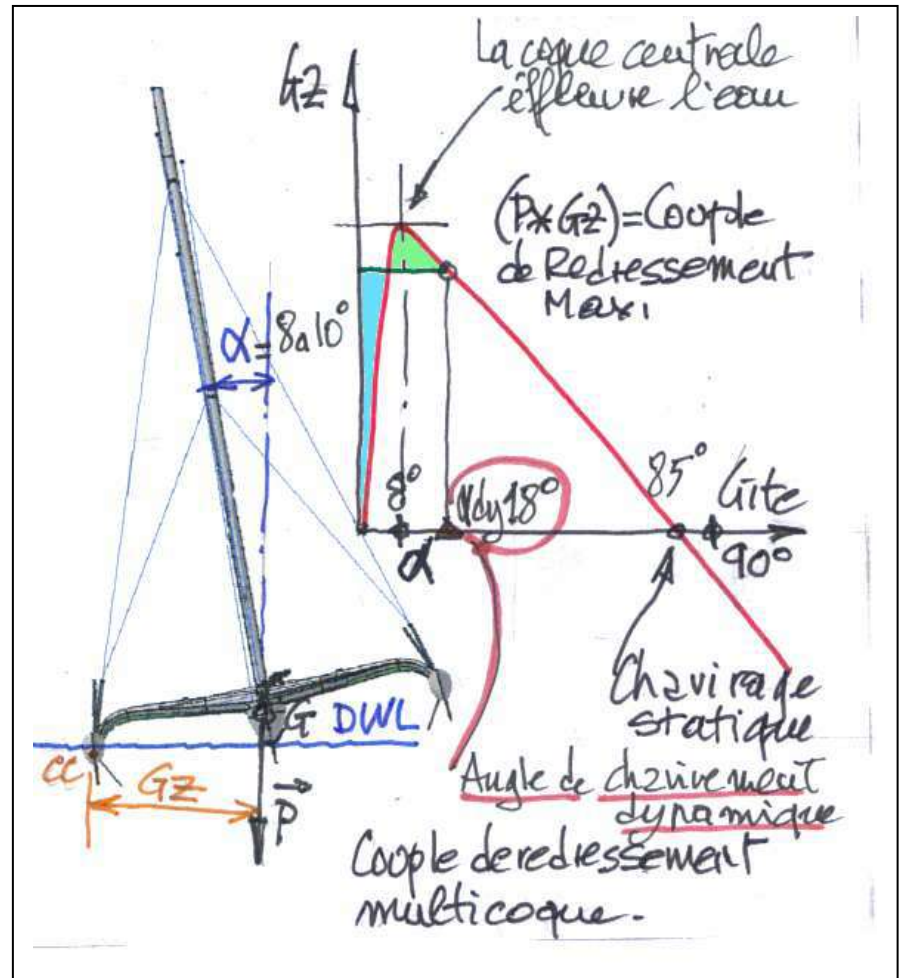 La coque centrale
éffleure l'eau
GZ
(P*GZ)=Couple
de Redressement
Maxi
α=8à10°
8°
αdy18°
85°
Gite
α
90°
Chavirage
statique
G
DWL
CC
GZ
P
Angle de chavirement
dynamique
Couple de redressement
multicoque.